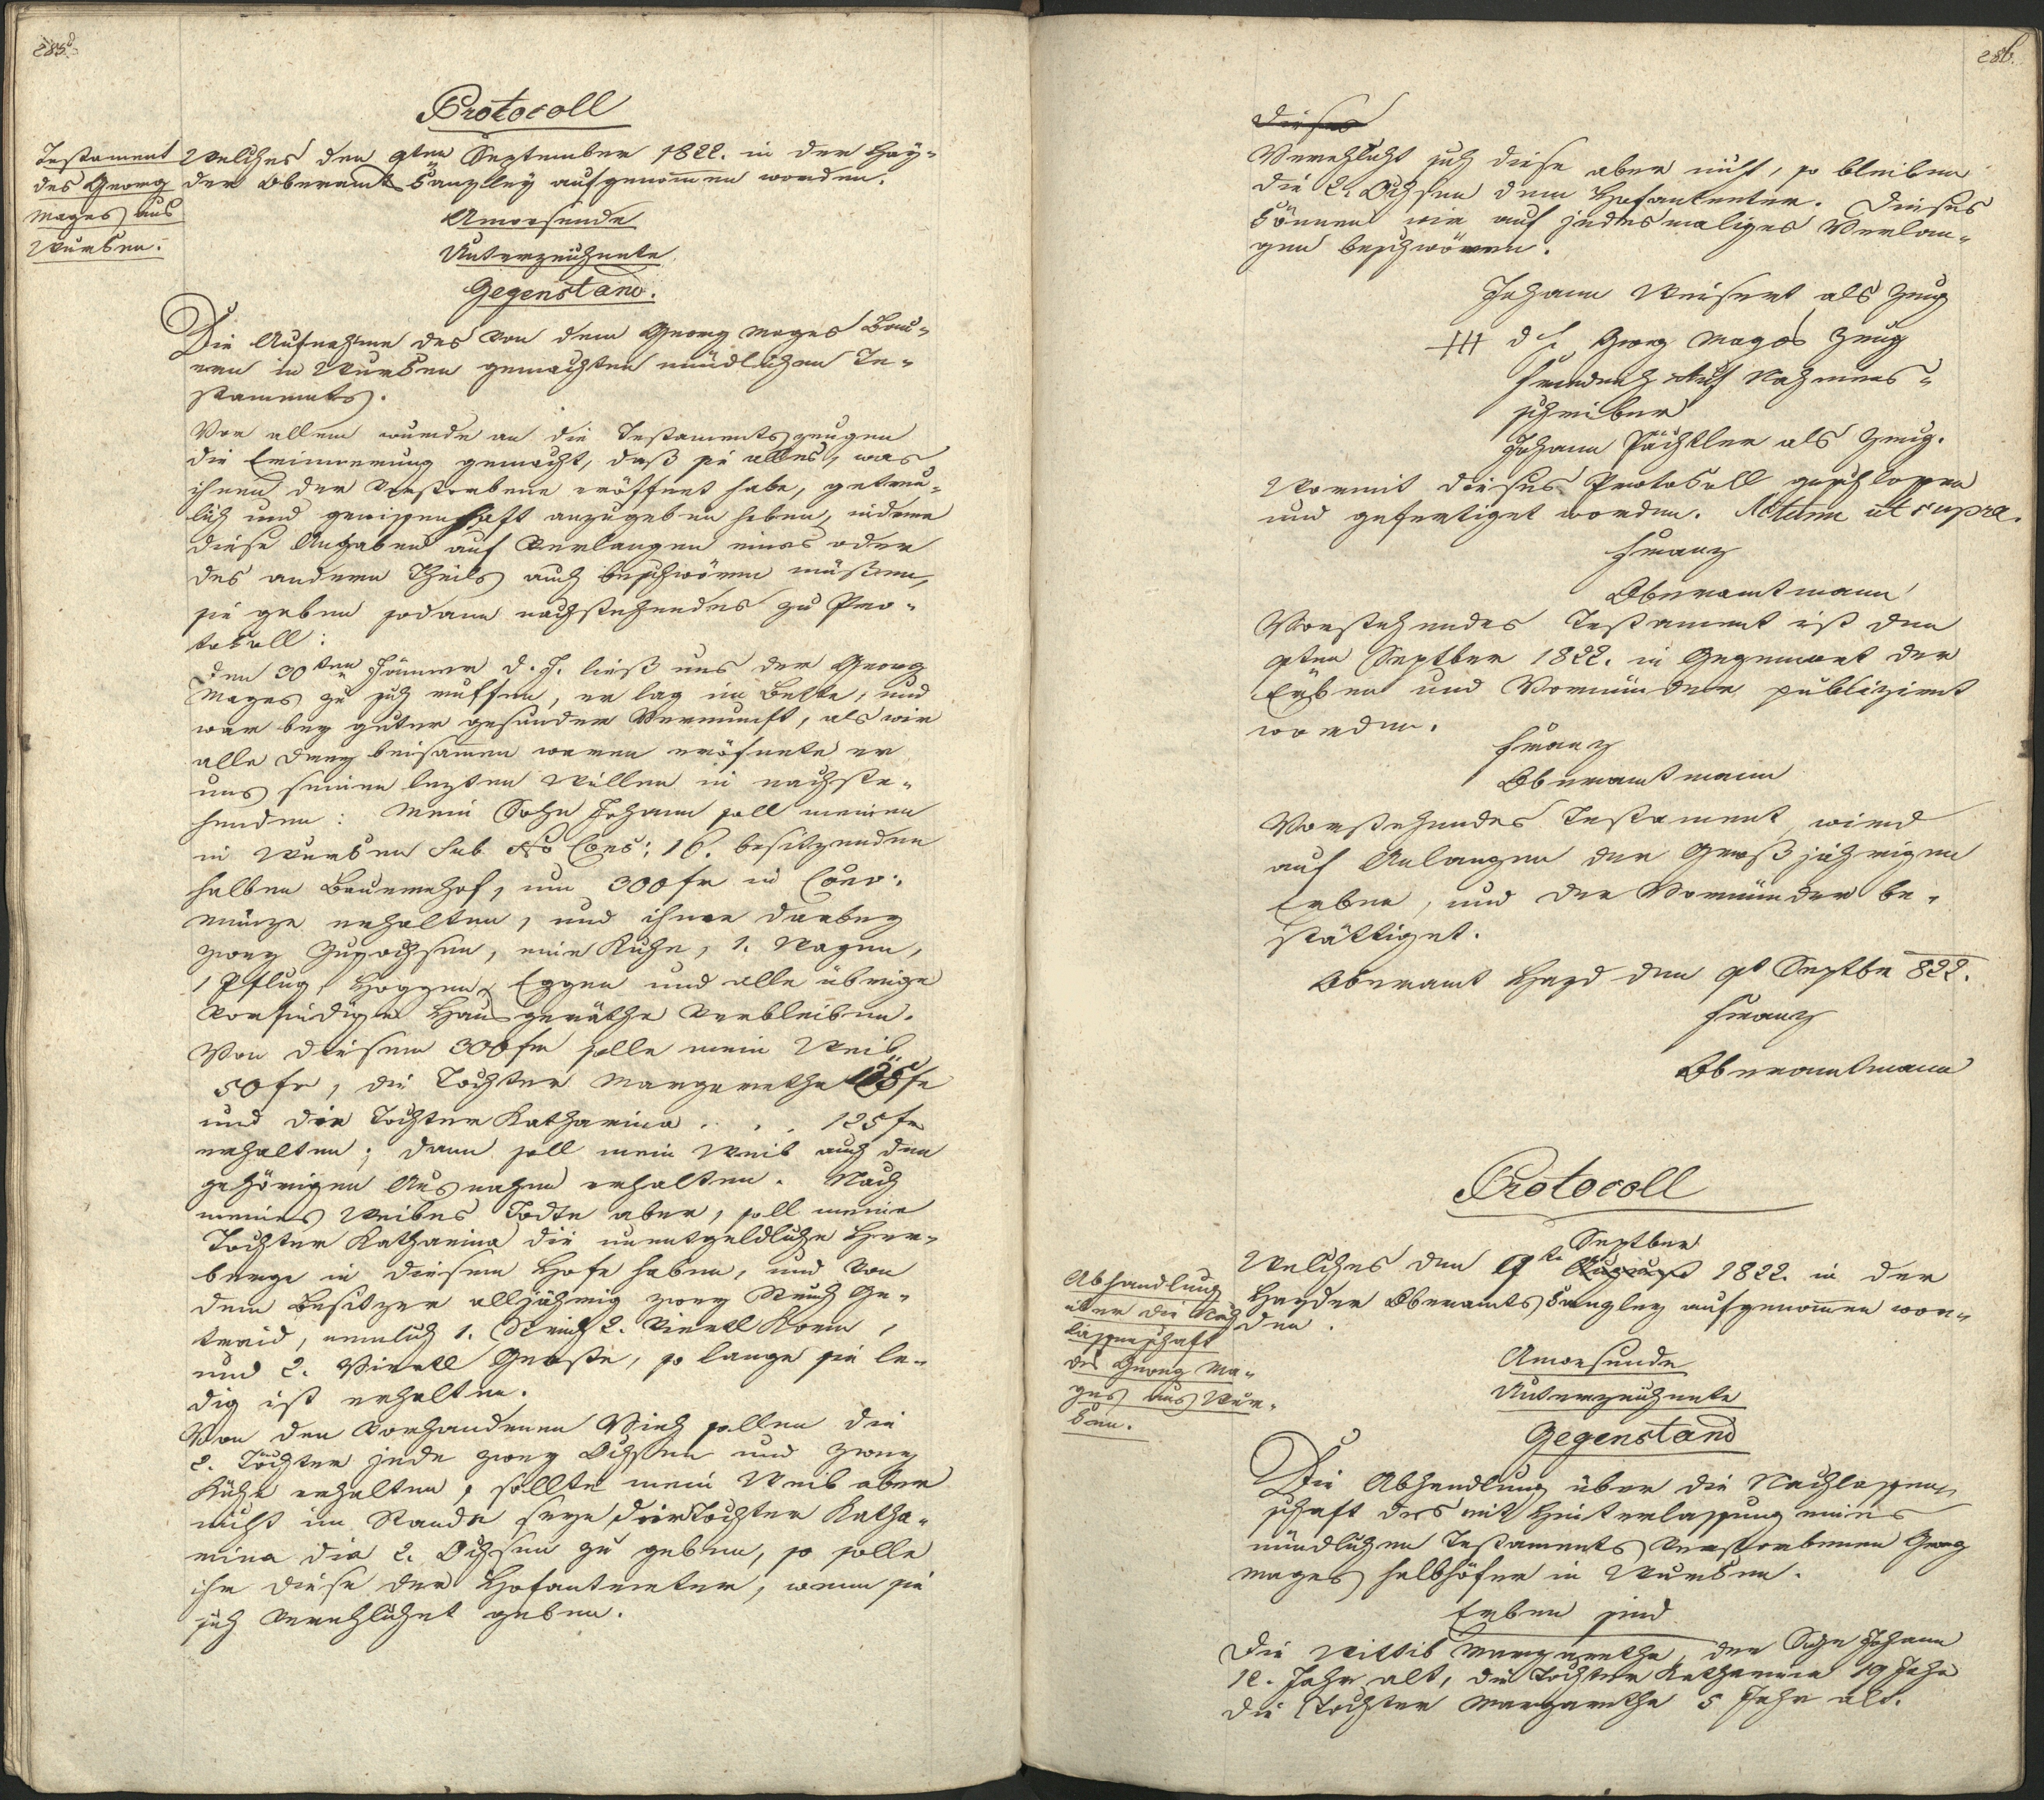 285.
Protocoll
Testament
des Georg
Mages aus
Wurken.
Welches den 9ten September 1822. in der Hay-
der Oberamtskanzley aufgenom̄en worden.
Anwesende
Unterzeichnete
Gegenstand.
Die Aufnahme des von dem Georg Mages Bau-
ern in Wurken gemachten mündlichen Te-
staments.
Vor allem wurde an die Testamentszeugen
die Erinnerung gemacht, daß sie alles, was
ihnen der Verstorbene eröffnet habe, getreu-
lich und gewissenhaft anzugeben haben, indeme
diese Angaben auf Verlangen eines oder
des andern Theils auch beschwören müßen,
sie geben sodann nachstehendes zu Pro-
tokoll:
Den 30ten Jänner d. J. ließ uns der Georg
Mages zu sich ruffen, er lag im Bette, und
war bey guter gesunder Vernunft, als wir
alle drey beisam̄en waren eröfnete er
uns seinen lezten Willen in nachste-
henden: Mein Sohn Johann soll meinen
in Wurken sub No Cons: 16. besitzenden
halben Bauernhof, um 300 fr in Conv:
münze erhalten, und ihme darbey
zwey Zugochsen, eine Kuhe, 1. Wagen,
1 Pflug, Eggen und alle übrige
vorfindige Hausgeräthe verbleiben.
Von diesem 300 fr solle mein Weib
50 fr, die Tochter Margaretha 125 fr
und die Tochter Katharina . . . 125 fr
erhalten; dann soll mein Weib auch den
gehörigen Ausnahm erhalten. Nach
meines Weibes Todte aber, soll meine
Tochter Katharina die unentgeldliche Her-
berge in diesem Hofe haben, und von
dem Besitzer alljährig zwey Strich Ge-
traid, nemlich 1. Strich 2. Viertl Korn,
und 2. Viertl Gerste, so lange sie le-
dig ist erhalten.
Von den vorhandenen Vieh sollen die
2. Töchter jede zwey Ochsen und zwey
Kühe erhalten, sollte mein Weib aber
nicht im Stande seyn, der Tochter Katha-
rina die 2. Ochsen zu geben, so solle
ihr diese der Hofantreter, wenn sie
sich verehlichet geben.
286.
Dieses
Verehlicht sich diese aber nicht, so bleiben
die 2. Ochsen dem Hofantreter. Dieses
können wir auf jedesmaliges Verlan-
gen beschwören.
Johann Weisert als Zeug
+++ d. h. Georg Mages Zeug
Nahmens-
schreiber
Johann Pächtler als Zeug.
Womit dieses Protokoll geschlossen
und gefertiget worden. Actum ut supra.
Franz
Oberamtmann
Vorstehendes Testament ist den
9ten Septber 1822. in Gegenwart der
Erben und Vormünder publizirt
worden.
Franz
Oberamtmann
Vorstehendes Testament wird
auf Anlangen der Großjährigen
Erben, und der Vormünder be-
stättiget.
Oberamt Hayd den 9t Septbr 822.
Franz
Oberamtmann
Protocoll
Abhandlung
über die Nach
lassenschaft
des Georg Ma-
ges aus Wur-
ken.
Septber
Welches den 9te August 1822. in der
Hayder Oberamtskanzley aufgenom̄en wor-
den.
Anwesende
Unterzeichnete
Gegenstand
Die Abhandlung über die Nachlassen-
schaft des mit Hinterlassung eines
mündlichen Testaments verstorbenen Georg
Mages Halbhöfer in Wurken.
Erben sind
Die Wittib Margaretha, der Sohn Johann
12. Jahr alt, die Tochter Katharina 19 Jahr
die Tochter Margaretha 5 Jahr alt.